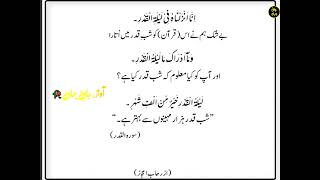 اِنَّا اَنْزَلْنَاہُ فِیْ لَیْلَۃِ الْقَدْرِ۔
بے شک ہم نے اس(قرآن) کو شب قدر میں اُتارا
وَمَآ اَدْرَاکَ مَا لَیْلَۃُ الْقَدْرِ۔
اور آپ کو کیا معلوم کہ شب قدر کیا ہے؟
لَیْلَۃُ الْقَدْرِ خَیْرٌ مِّنْ اَلْفِ شَہْرٍ۔
”شب قدر ہزار مہینوں سے بہتر ہے۔“
(سورہ القدر)